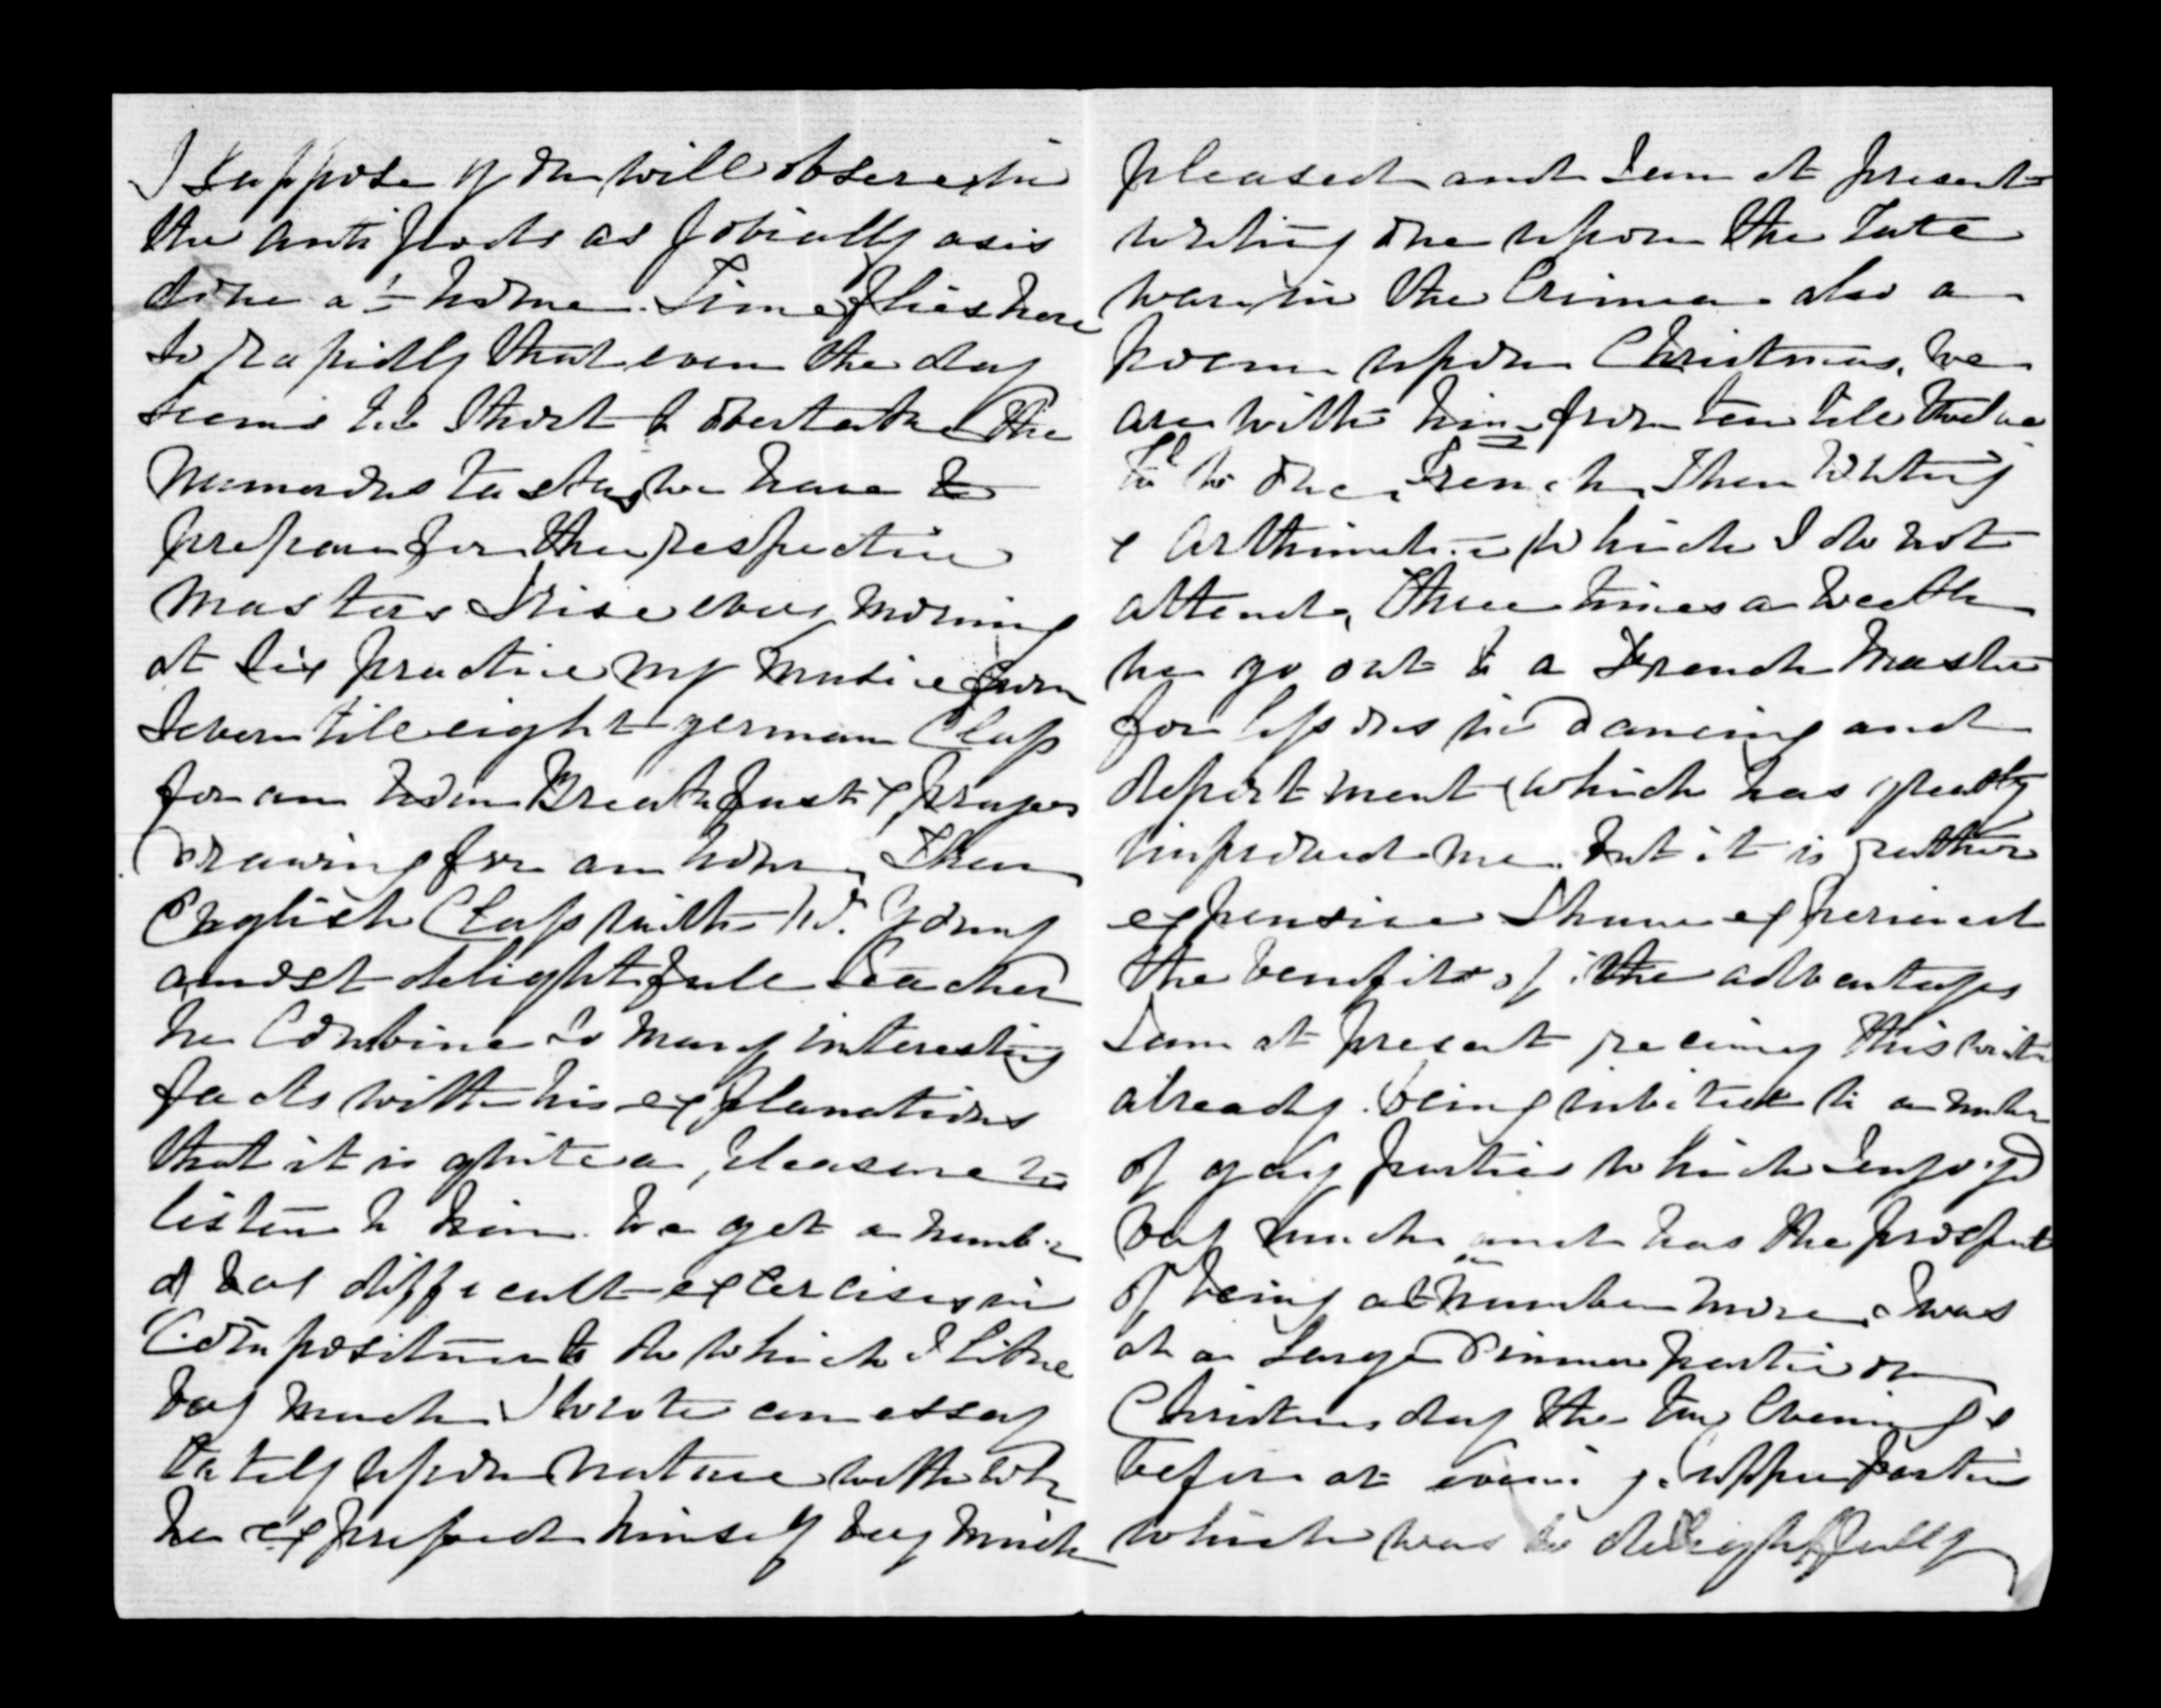 I suppose you will observe in
the antipods as jovially as is
done at home. Time flies here
so rapidly that even the day
seems too short to overtake the
numerous tasks we have to
prepare for the respective
masters I rise every morning
at six practice my music from
seven till eight german Class
for an hour Breakfast & prayers
Drawing for an hour, Then
English Class with Dr. Young
a most delightfull teacher
he combine so many interesting
facts with his explanations
that it is quite a pleasure to
listen to him. We get a number
of very difficult exercises in
Composition to do which I like
very much I wrote an essay
lately upon nature with
he expressed himself very much
pleased and I am at present
writing one upon the late
war in the Crimea also a
poem upon Christmas, we
are with him from ten till twelve
to one French, Then Writing
& Arthimetic which I do not
attend, Three times a week
we go out to a French Master
for lessons in Dancing and
deportment which has greatly
improved me but it is rather
expensive I have experienced
the benefits of the advantages
I am at present receiving this winter
already. being invited to a number
of gay parties which I enjoyed
very much and has the prospect
of being at a number more, I was
at a large Dinner partie on
Christmas day the two evenings
before at evening supper parties
which was so delightfully